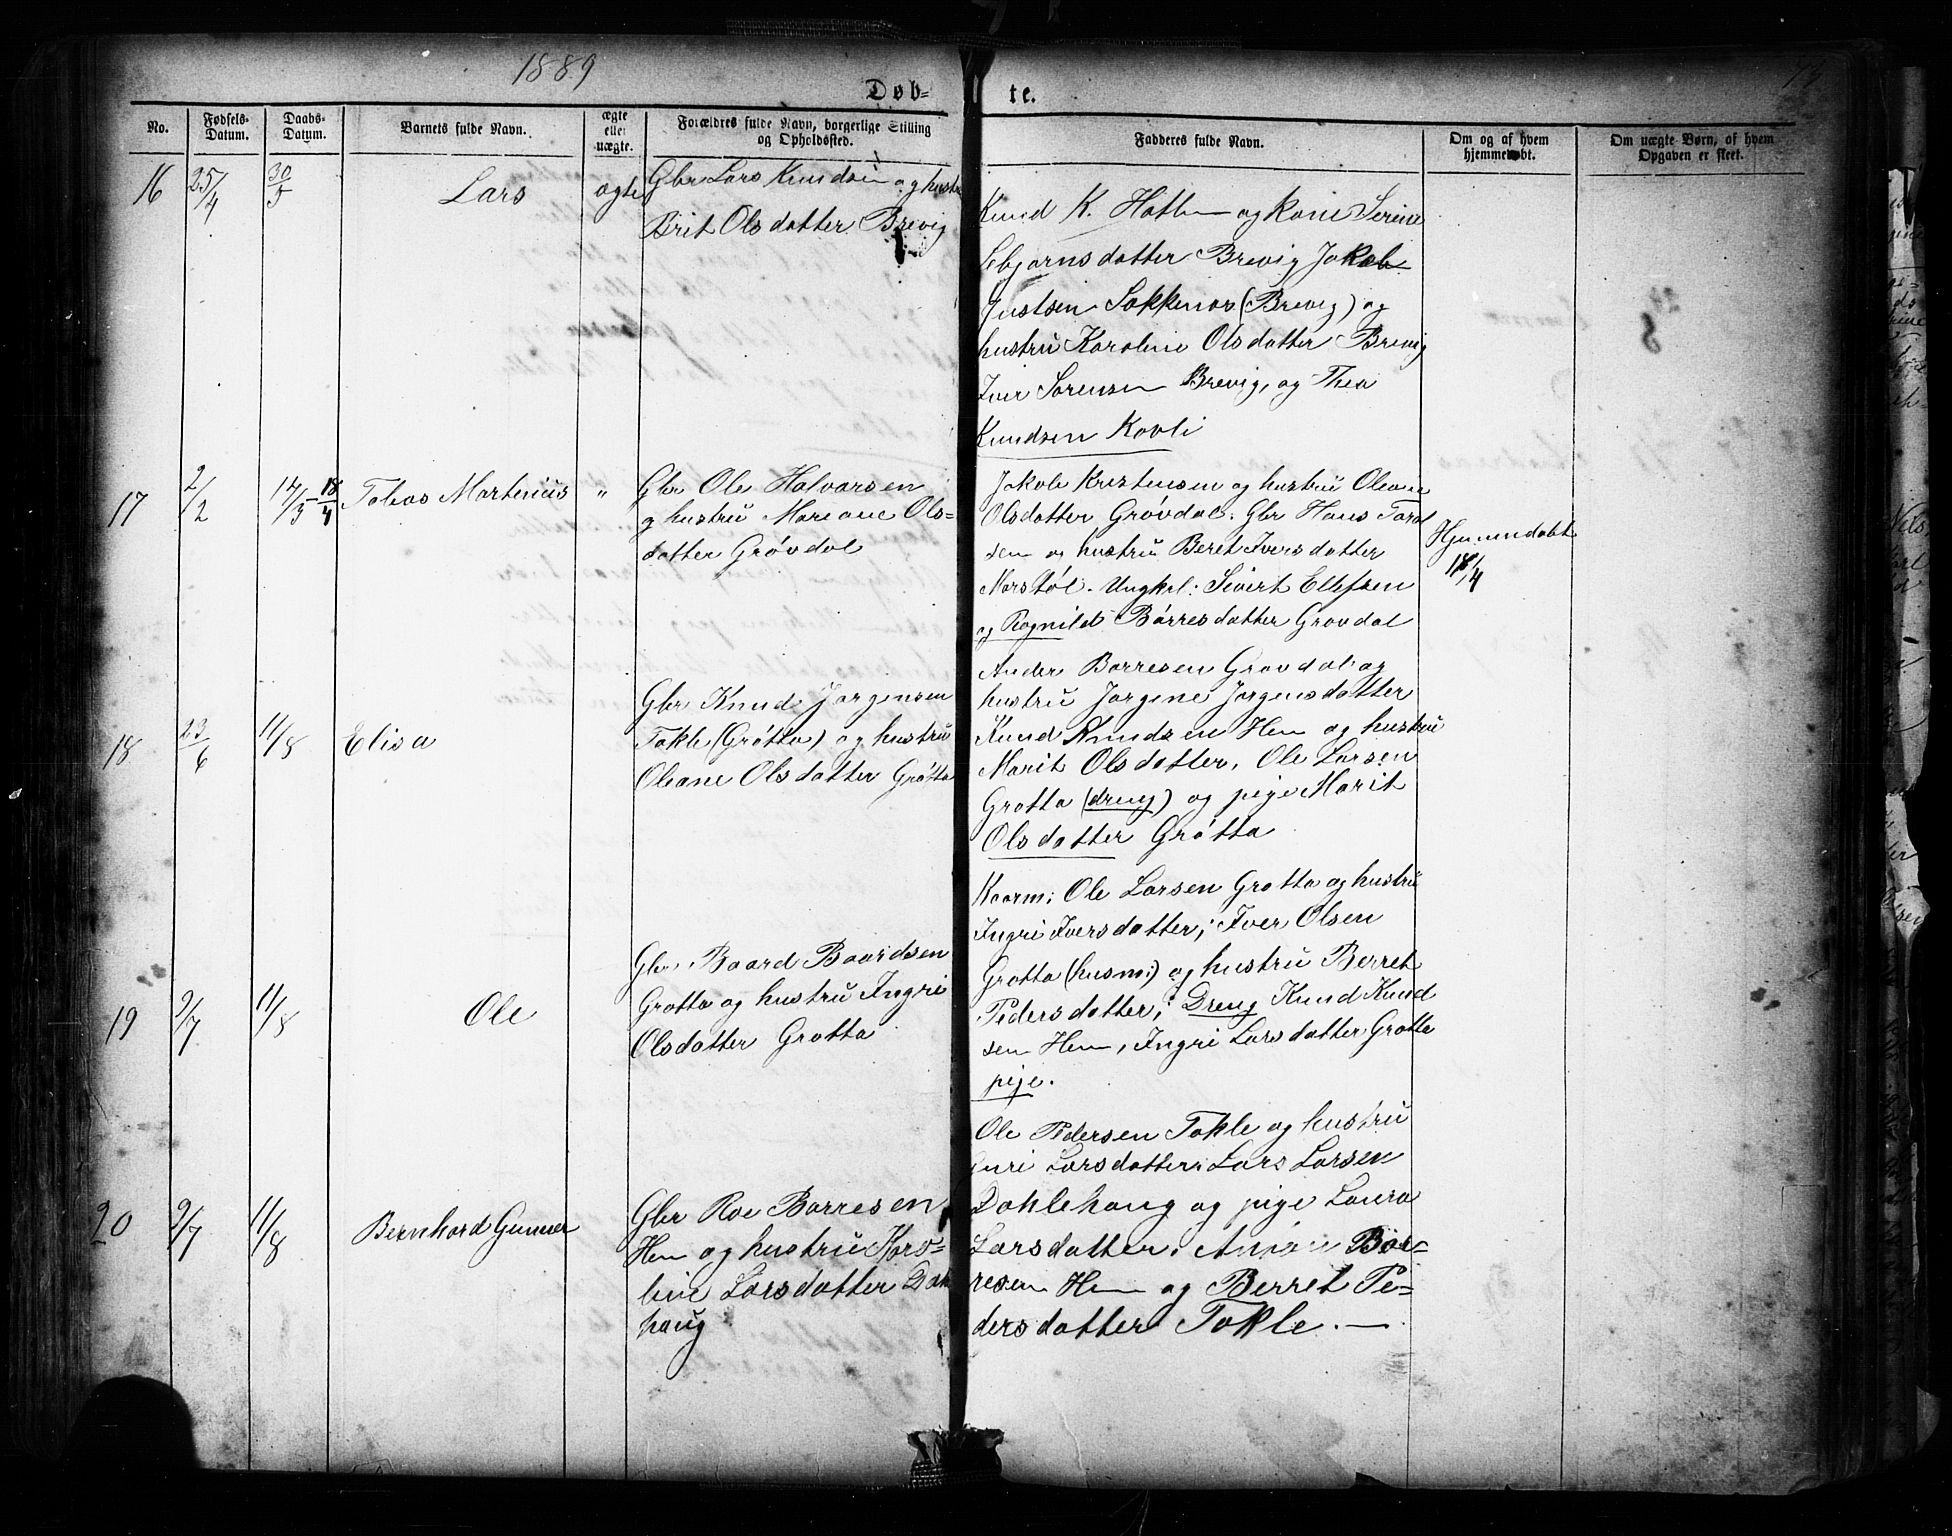 1889
73
Døb-
te.
No.
Fødsels-
Datum.
Daabs-
Datum.
Barnets fulde Navn.
ægte
eller
uægte.
Forældres fulde Navn, borgerlige Stilling
og Opholdssted.
Fadderes fulde Navn.
Om og af hvem
hjemmedøbt.
Om uægte Børn, af hvem
Opgaven er skeet.
16
25/4
30/5
Lars
ægte
Gbr Lars Knudsen og hustru
Brit Olsdatter Brevig
Knud K. Hatle og kone Serine
Sebjørnsdatter Brevig Jakob
Justsen Søkkenes (Brevig) og
hustru Karoline Olsdatter Brevig
Iver Sørensen Brevig, og Thea
Knudsen Kovli
17
2/2
14/5 - 18/4
Tobias Martenius
"
Gbr Ole Halvarsen
og hustru Mariane Ols-
datter Grøvdal
Jakob Kristensen og hustru Oleane
Olsdatter Grøvdal. Gbr Hans Tarol
sen og hustru Beret Iversdatter
Morstøl. Ungkrl: Sivert Ellefsen
og Ragnild Børresdatter Grøvdal
Hjemmdøbt
18/4
18
23/6
11/8
Elisa
Gbr Knud Jørgensen
Tokle (Grøtta) og hustru
Oleane Olsdatter Grøtta
Ander Børresen Grøvdal og
hustru Jørgine Jørgensdatter
Knud Knudsen Hem og hustru
Marit Olsdatter, Ole Larsen
Grøtta (dreng) og pige Marit
Olsdatter Grøtta
19
9/7
11/8
Ole
Gbr. Baard Baardsen
Grøtta og hustru Ingri
Olsdatter Grøtta
Kaarm: Ole Larsen Grøtta og hustru
Ingri Iversdatter; Iver Olsen
Grøtta (husm:) og hustru Berret
Pedersdatter; Dreng Knud Knud
sen Hem, Ingri Larsdatter Grøtta
pige.
20
9/7
11/8
Bernhard Gunner
Gbr Roe Børresen
Hem og hustru Karo-
line Larsdatter Dahle
haug
Ole Pedersen Tokle og hustru
Guri Larsdatter: Lars Larsen
Dahlehaug og pige Laura
Larsdatter: Bør-
resen Hem og Berret Pe-
dersdatter Tokle. —